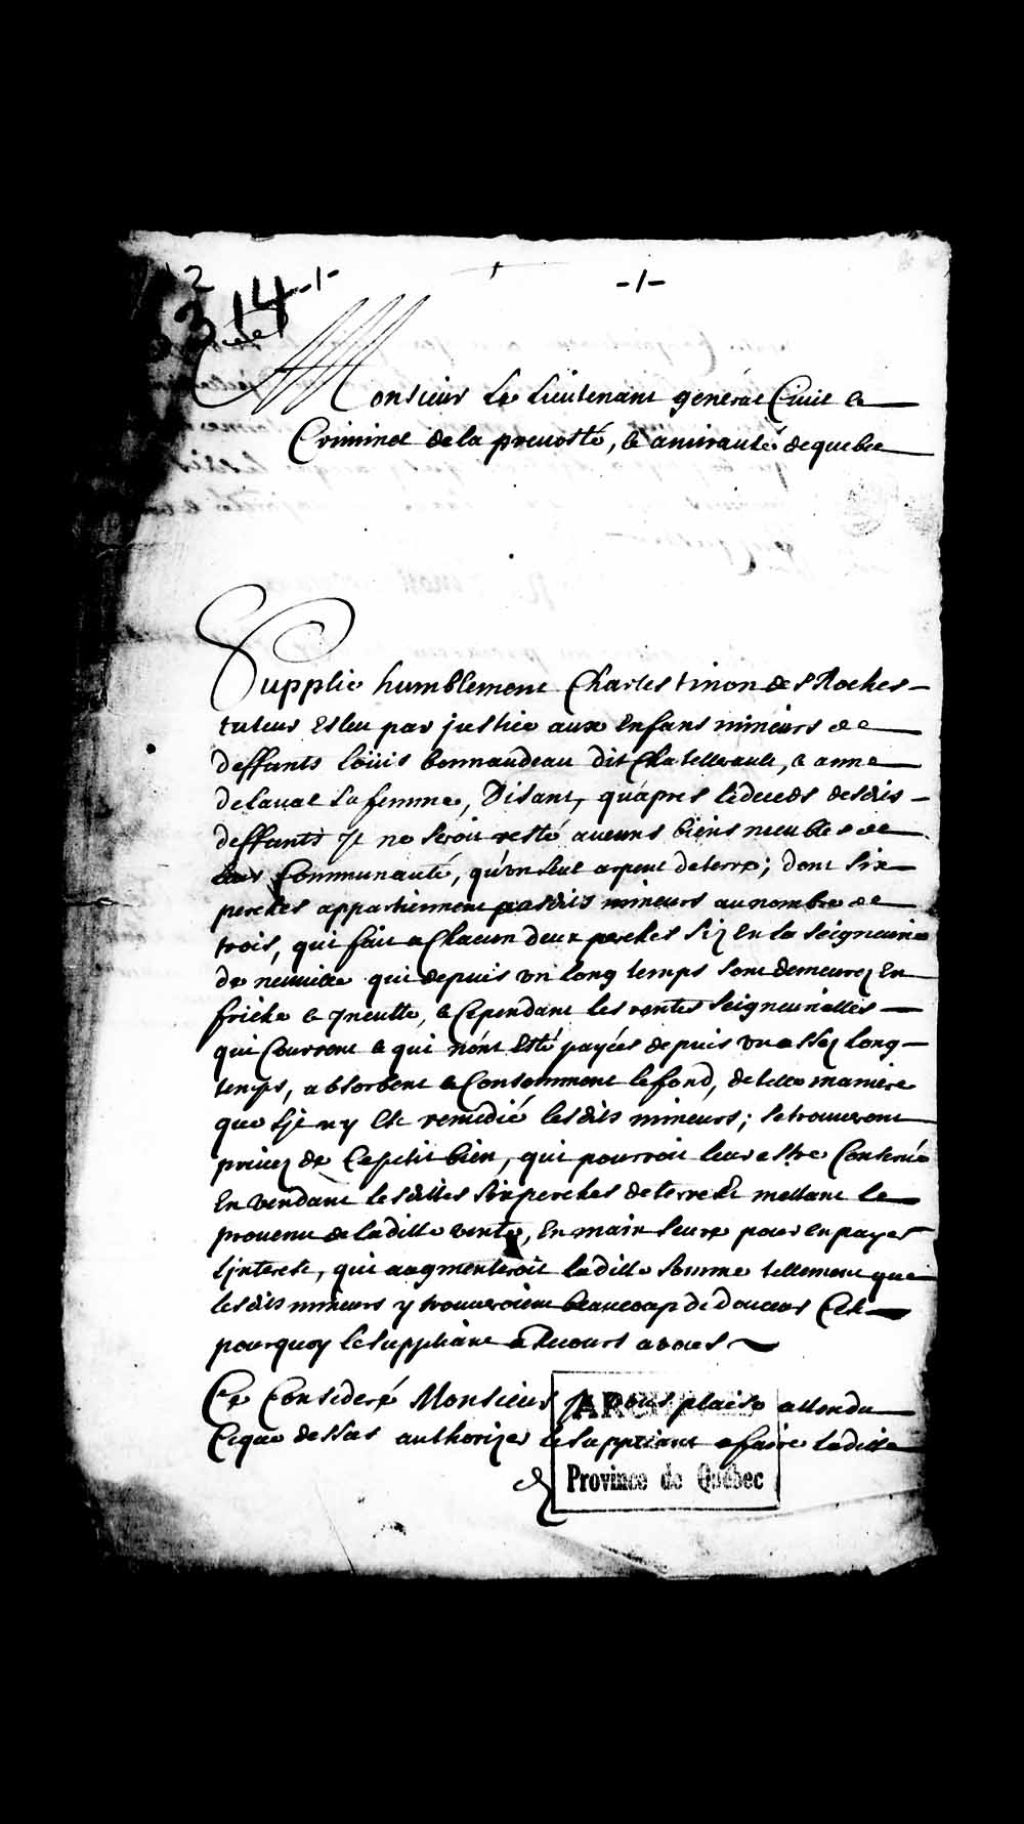 2
314-1-
-1-
Monsieur Le Lieutenant general Civil &
Criminel de la prevosté, & amirauté de quebec
Supplie humblement Charles tinon des Roches
tuteur esleu par justice aux Enfans mineurs de
deffunts loüis bonnaudeau dit Chatellerault, & anne
delaval sa femme, Disant, qu'apres le deceds desdits
deffunts Il ne seroit resté aucuns biens meubles de
leur Communauté, qu'un seul arpent de terre; dont six
perches appartiennent ausdits mineurs au nombre de
trois, qui fait a Chacun deux perches siz En la seigneurie
de neuville qui depuis un long temps sont demeurez En
friche & Inculte, & Cependant les rentes seigneurialles
qui Courrent & qui n'ont Esté payées depuis un assez long
temps, absorbent & Consomment le fond, de telle maniere
que s'il n'y Est remedié lesdits mineurs; se trouveront
privez de Ce petit bien, qui pourroit leur estre Conservé
En vendant lesdittes six perches de terre & mettant le
provenu de laditte vente, En main seure pour en payer
L'jnterest, qui augmenteroit laditte somme tellement que
lesdits mineurs y trouveroient beaucoup de douceur C'est
pourquoy le suppliant a Recours a vous
Ce Consideré Monsieur Il vous plaise attendu
Ce que dessus authorizer le suppliant a faire laditte
ARCHIVES
Province de Québec